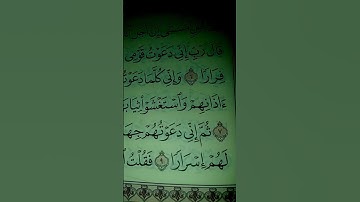 قَالَ رَبِّ إِنِّي دَعَوْتُ قَوْمِي
فِرَارًا ٦ وَإِنِّي كُلَّمَا دَعَوْتُ
ءَاذَانِهِمْ وَٱسْتَغْشَوْا۟ ثِيَابَ
٧ ثُمَّ إِنِّي دَعَوْتُهُمْ جِهَا
لَهُمْ إِسْرَارًا ٩ فَقُلْتُ ٱ